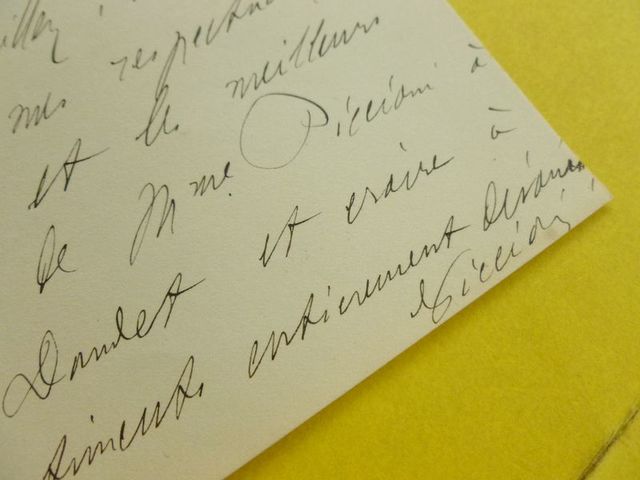 mes respectu
et les meilleurs
de Mme Piccioni à
Daudet et croire à
timents entièrement dévoués
Piccioni